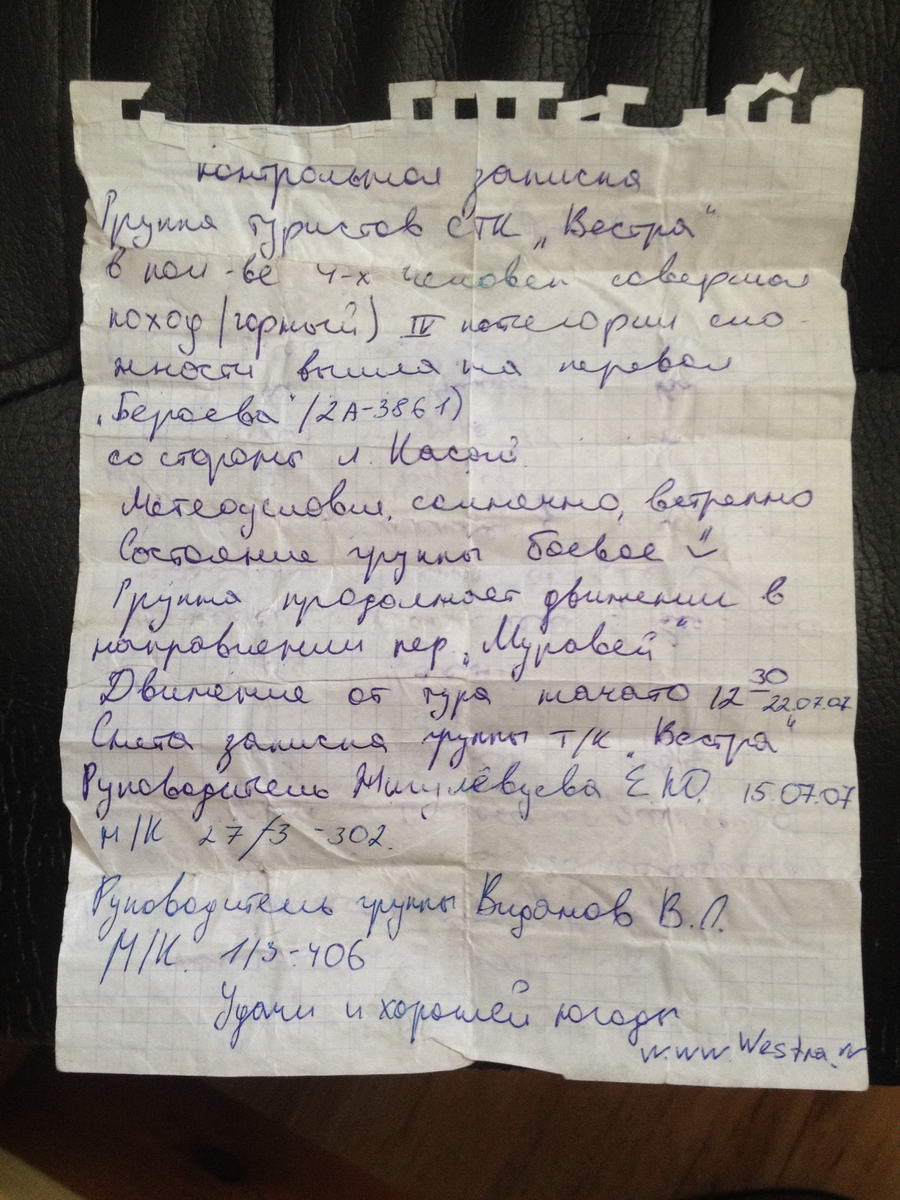 Контрольная записка
Группа туристов СТК „Вестра"
в кол-ве 4-х человек совершая
поход (горный) IV категории сло-
жности вышла на перевал
„Бераева" (2А-3861)
со стороны л. Касай.
Метеоусловия, солнечно, ветренно
Состояние группы боевое
Группа продолжает движении в
направлении пер. „Муравей"
Движение от тура начато 12 30 22.07.07
Снята записка группы т/к „Вестра"
Руководитель Е.Ю. 15.07.07
М/К 27/3-302.
Руководитель группы Виданов В.Л.
М/К. 1/3-406
Удачи и хорошей погоды
www.Westra.ru